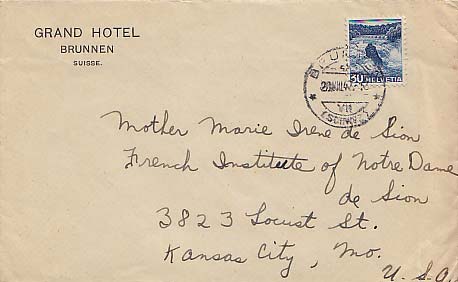 GRAND HOTEL
BRUNNEN
SUISSE.
30 HELVETIA
(SCHWYZ)
Mother Marie Irene de Sion
French Institute of Notre Dame
de Sion
3823 Locust St.
Kansas City, Mo.
U.S.A.